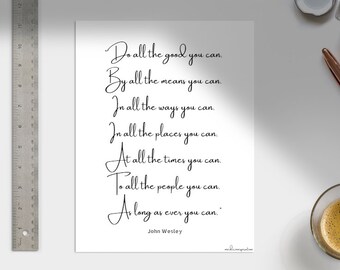 Do all the good you can.
By all the means you can.
In all the ways you can.
In all the places you can.
At all the times you can.
To all the people you can.
As long as ever you can."
John Wesley